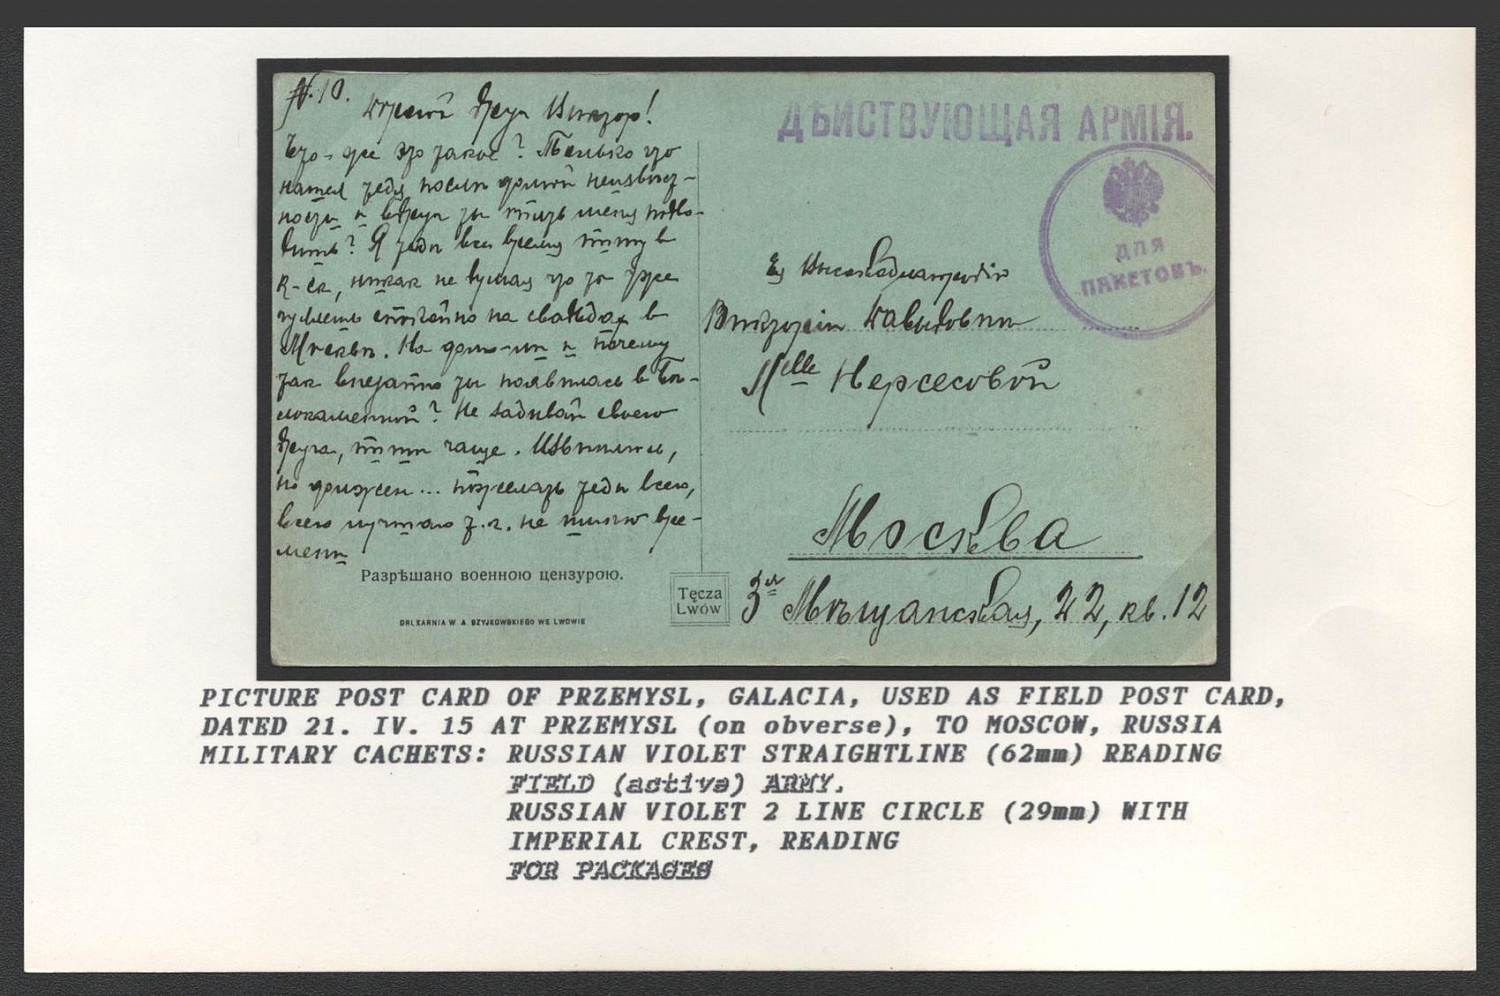 № 10.
Дорогой друг Виктор!
Что-же это такое? Только что
нашел тебя после долгой неизвест-
ности и вдруг ты опять меня
? Я тебе все время пишу в
К-ск, никак не думая что ты уже
гуляешь спокойно на свадьбах в
Москве. На долго-ли и почему
так внезапно ты появилась в Бѣ-
локаменной? Не забывай своего
друга, пиши чаще. Извиняюсь,
но должен... пожелать тебе всего,
всего лучшаго т.к. не имѣю вре-
мени
Разрѣшано военною цензурою.
DRUKARNIA W. A. SZYJKOWSKIEGO WE LWOWIE
Tęcza
Lwów
ДѢЙСТВУЮЩАЯ АРМІЯ.
ДЛЯ
ПАКЕТОВЪ.
Ея Высокоблагородію
Викторіи Давыдовнѣ
Mlle Нерсесовой
Москва
3ья Мѣщанская, 22, кв. 12
PICTURE POST CARD OF PRZEMYSL, GALACIA, USED AS FIELD POST CARD,
DATED 21. IV. 15 AT PRZEMYSL (on obverse), TO MOSCOW, RUSSIA
MILITARY CACHETS: RUSSIAN VIOLET STRAIGHTLINE (62mm) READING
FIELD (active) ARMY.
RUSSIAN VIOLET 2 LINE CIRCLE (29mm) WITH
IMPERIAL CREST, READING
FOR PACKAGES